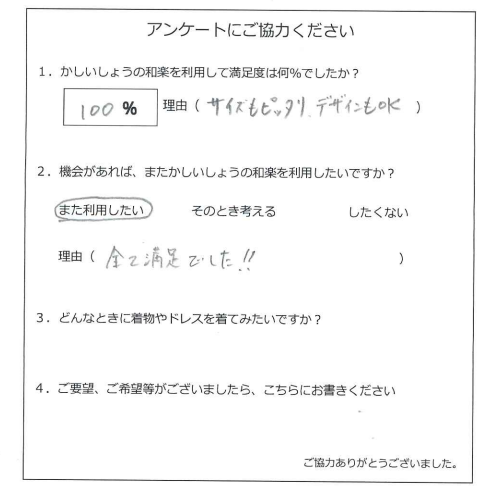 アンケートにご協力ください
1．かしいしょうの和楽を利用して満足度は何%でしたか？
100 % 理由（ サイズもピッタリ、デザインもOK ）
2．機会があれば、またかしいしょうの和楽を利用したいですか？
また利用したい そのとき考える したくない
理由（ 全て満足でした!! ）
3．どんなときに着物やドレスを着てみたいですか？
4．ご要望、ご希望等がございましたら、こちらにお書きください
ご協力ありがとうございました。